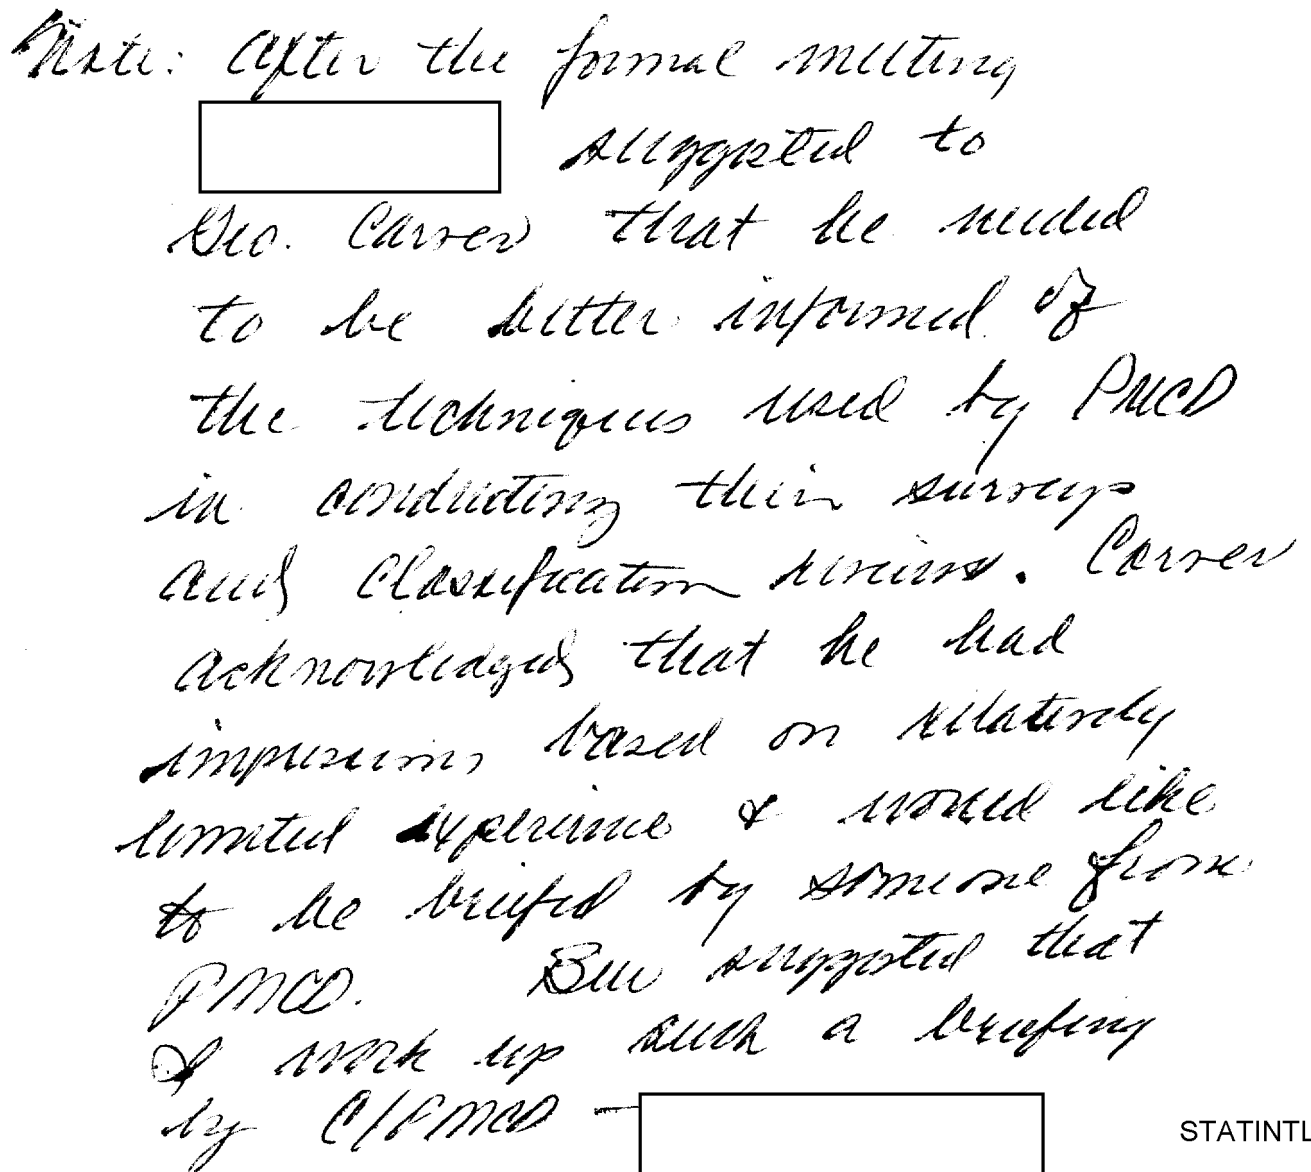 Note: After the formal meeting
suggested to
Geo. Carver that he needed
to be better informed of
the techniques used by PMCD
in conducting their surveys
and classification reviews. Carver
acknowledged that he had
impressions based on relatively
limited experience & would like
to be briefed by someone from
PMCD. suggested that
I work up such a briefing
by C/PMCD —
STATINTL